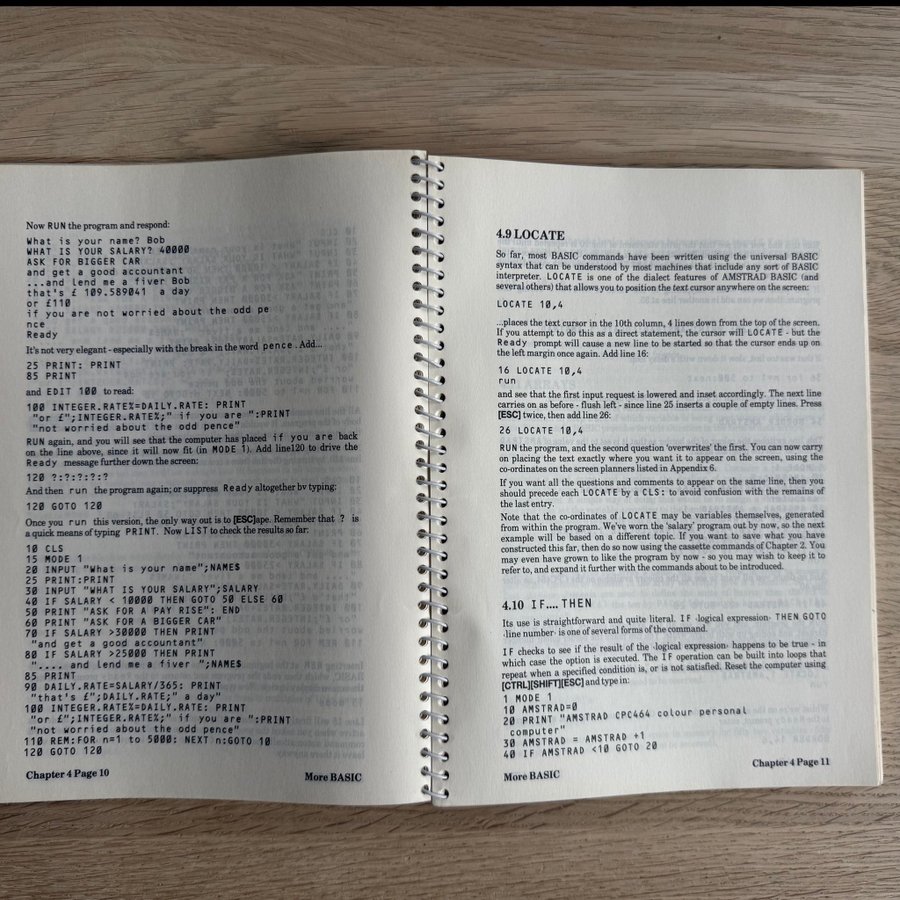 Now RUN the program and respond:
What is your name? Bob
WHAT IS YOUR SALARY? 40000
ASK FOR BIGGER CAR
and get a good accountant
...and lend me a fiver Bob
that's £ 109.589041  a day
or £110
if you are not worried about the odd pe
nce
Ready
It's not very elegant - especially with the break in the word pence. Add...
25 PRINT: PRINT
85 PRINT
and EDIT 100 to read:
100 INTEGER.RATE%=DAILY.RATE: PRINT
"or £";INTEGER.RATE%;" if you are ":PRINT
"not worried about the odd pence"
RUN again, and you will see that the computer has placed if you are back
on the line above, since it will now fit (in MODE 1). Add line120 to drive the
Ready message further down the screen:
120 ?:?:?:?:?
And then run the program again; or suppress Ready altogether by typing;
120 GOTO 120
Once you run this version, the only way out is to [ESC]ape. Remember that ? is
a quick means of typing PRINT. Now LIST to check the results so far:
10 CLS
15 MODE 1
20 INPUT "What is your name";NAME$
25 PRINT:PRINT
30 INPUT "WHAT IS YOUR SALARY";SALARY
40 IF SALARY < 10000 THEN GOTO 50 ELSE 60
50 PRINT "ASK FOR A PAY RISE": END
60 PRINT "ASK FOR A BIGGER CAR"
70 IF SALARY >30000 THEN PRINT
"and get a good accountant"
80 IF SALARY >25000 THEN PRINT
".... and lend me a fiver ";NAME$
85 PRINT
90 DAILY.RATE=SALARY/365: PRINT
"that's £";DAILY.RATE;" a day"
100 INTEGER.RATE%=DAILY.RATE: PRINT
"or £";INTEGER.RATE%;" if you are ":PRINT
"not worried about the odd pence"
110 REM:FOR n=1 to 5000: NEXT n:GOTO 10
120 GOTO 120
Chapter 4 Page 10
More BASIC
4.9 LOCATE
So far, most BASIC commands have been written using the universal BASIC
syntax that can be understood by most machines that include any sort of BASIC
interpreter. LOCATE is one of the dialect features of AMSTRAD BASIC (and
several others) that allows you to position the text cursor anywhere on the screen:
LOCATE 10,4
...places the text cursor in the 10th column, 4 lines down from the top of the screen.
If you attempt to do this as a direct statement, the cursor will LOCATE - but the
Ready prompt will cause a new line to be started so that the cursor ends up on
the left margin once again. Add line 16:
16 LOCATE 10,4
run
and see that the first input request is lowered and inset accordingly. The next line
carries on as before - flush left - since line 25 inserts a couple of empty lines. Press
[ESC] twice, then add line 26:
26 LOCATE 10,4
RUN the program, and the second question 'overwrites' the first. You can now carry
on placing the text exactly where you want it to appear on the screen, using the
co-ordinates on the screen planners listed in Appendix 6.
If you want all the questions and comments to appear on the same line, then you
should precede each LOCATE by a CLS: to avoid confusion with the remains of
the last entry.
Note that the co-ordinates of LOCATE may be variables themselves, generated
from within the program. We've worn the 'salary' program out by now, so the next
example will be based on a different topic. If you want to save what you have
constructed this far, then do so now using the cassette commands of Chapter 2. You
may even have grown to like the program by now - so you may wish to keep it to
refer to, and expand it further with the commands about to be introduced.
4.10 IF.... THEN
Its use is straightforward and quite literal. IF ‹logical expression› THEN GOTO
‹line number› is one of several forms of the command.
IF checks to see if the result of the ‹logical expression› happens to be true - in
which case the option is executed. The IF operation can be built into loops that
repeat when a specified condition is, or is not satisfied. Reset the computer using
[CTRL][SHIFT][ESC] and type in:
1 MODE 1
10 AMSTRAD=0
20 PRINT "AMSTRAD CPC464 colour personal
computer"
30 AMSTRAD = AMSTRAD +1
40 IF AMSTRAD <10 GOTO 20
More BASIC
Chapter 4 Page 11